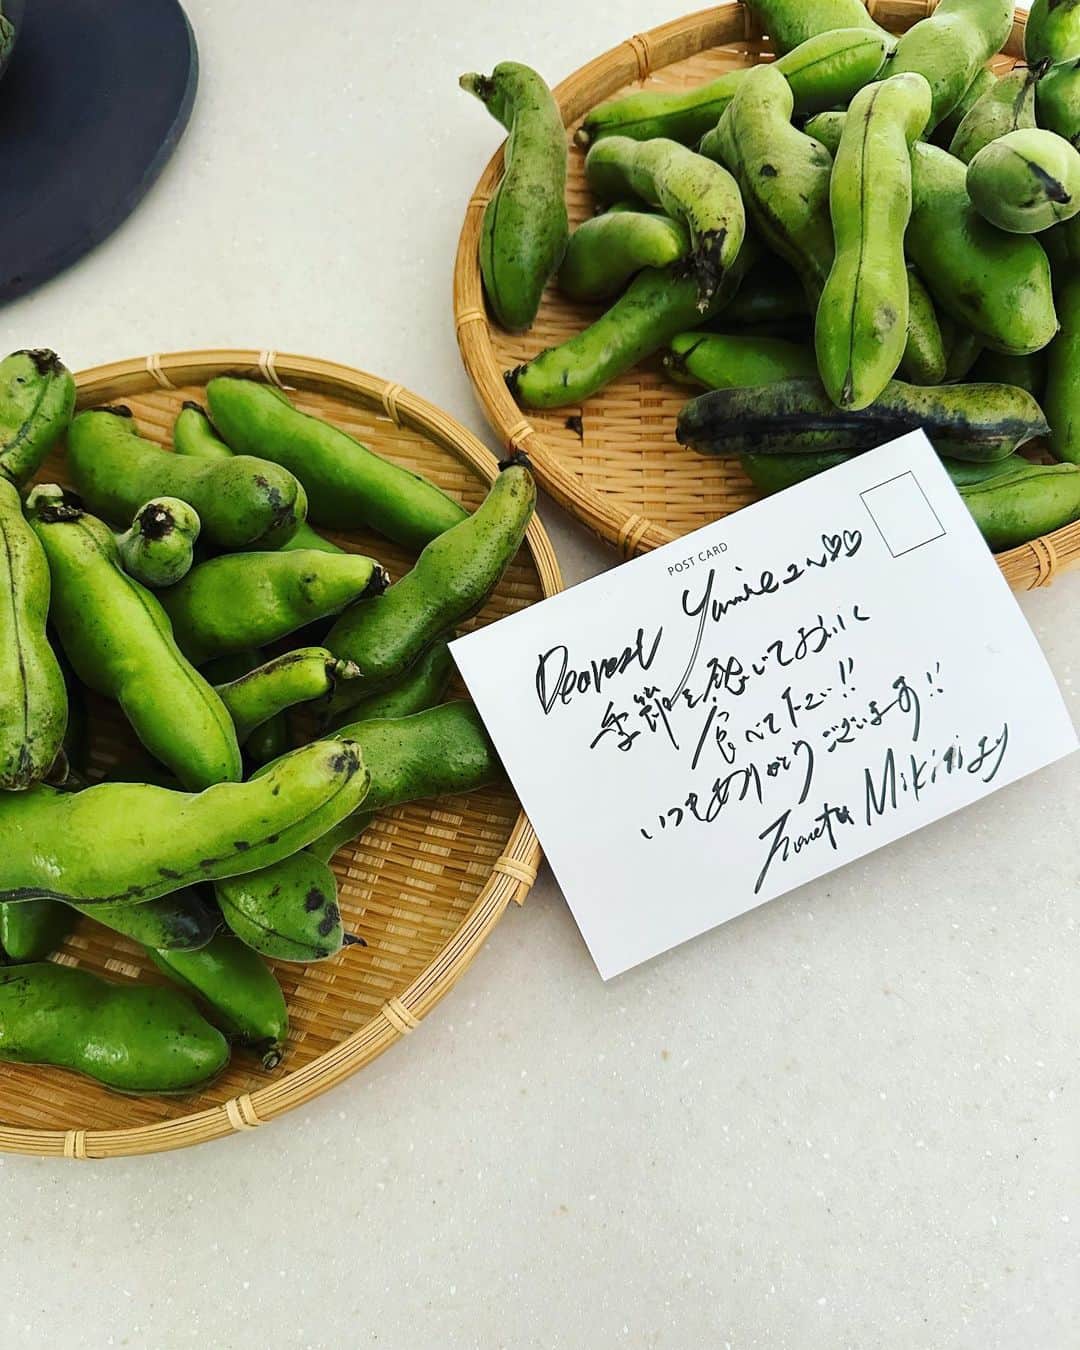 POST CARD
Dearest Yumieさん♡♡
季節を感じておいしく
食べて下さい!!
いつもありがとうございます!!
Mikiより